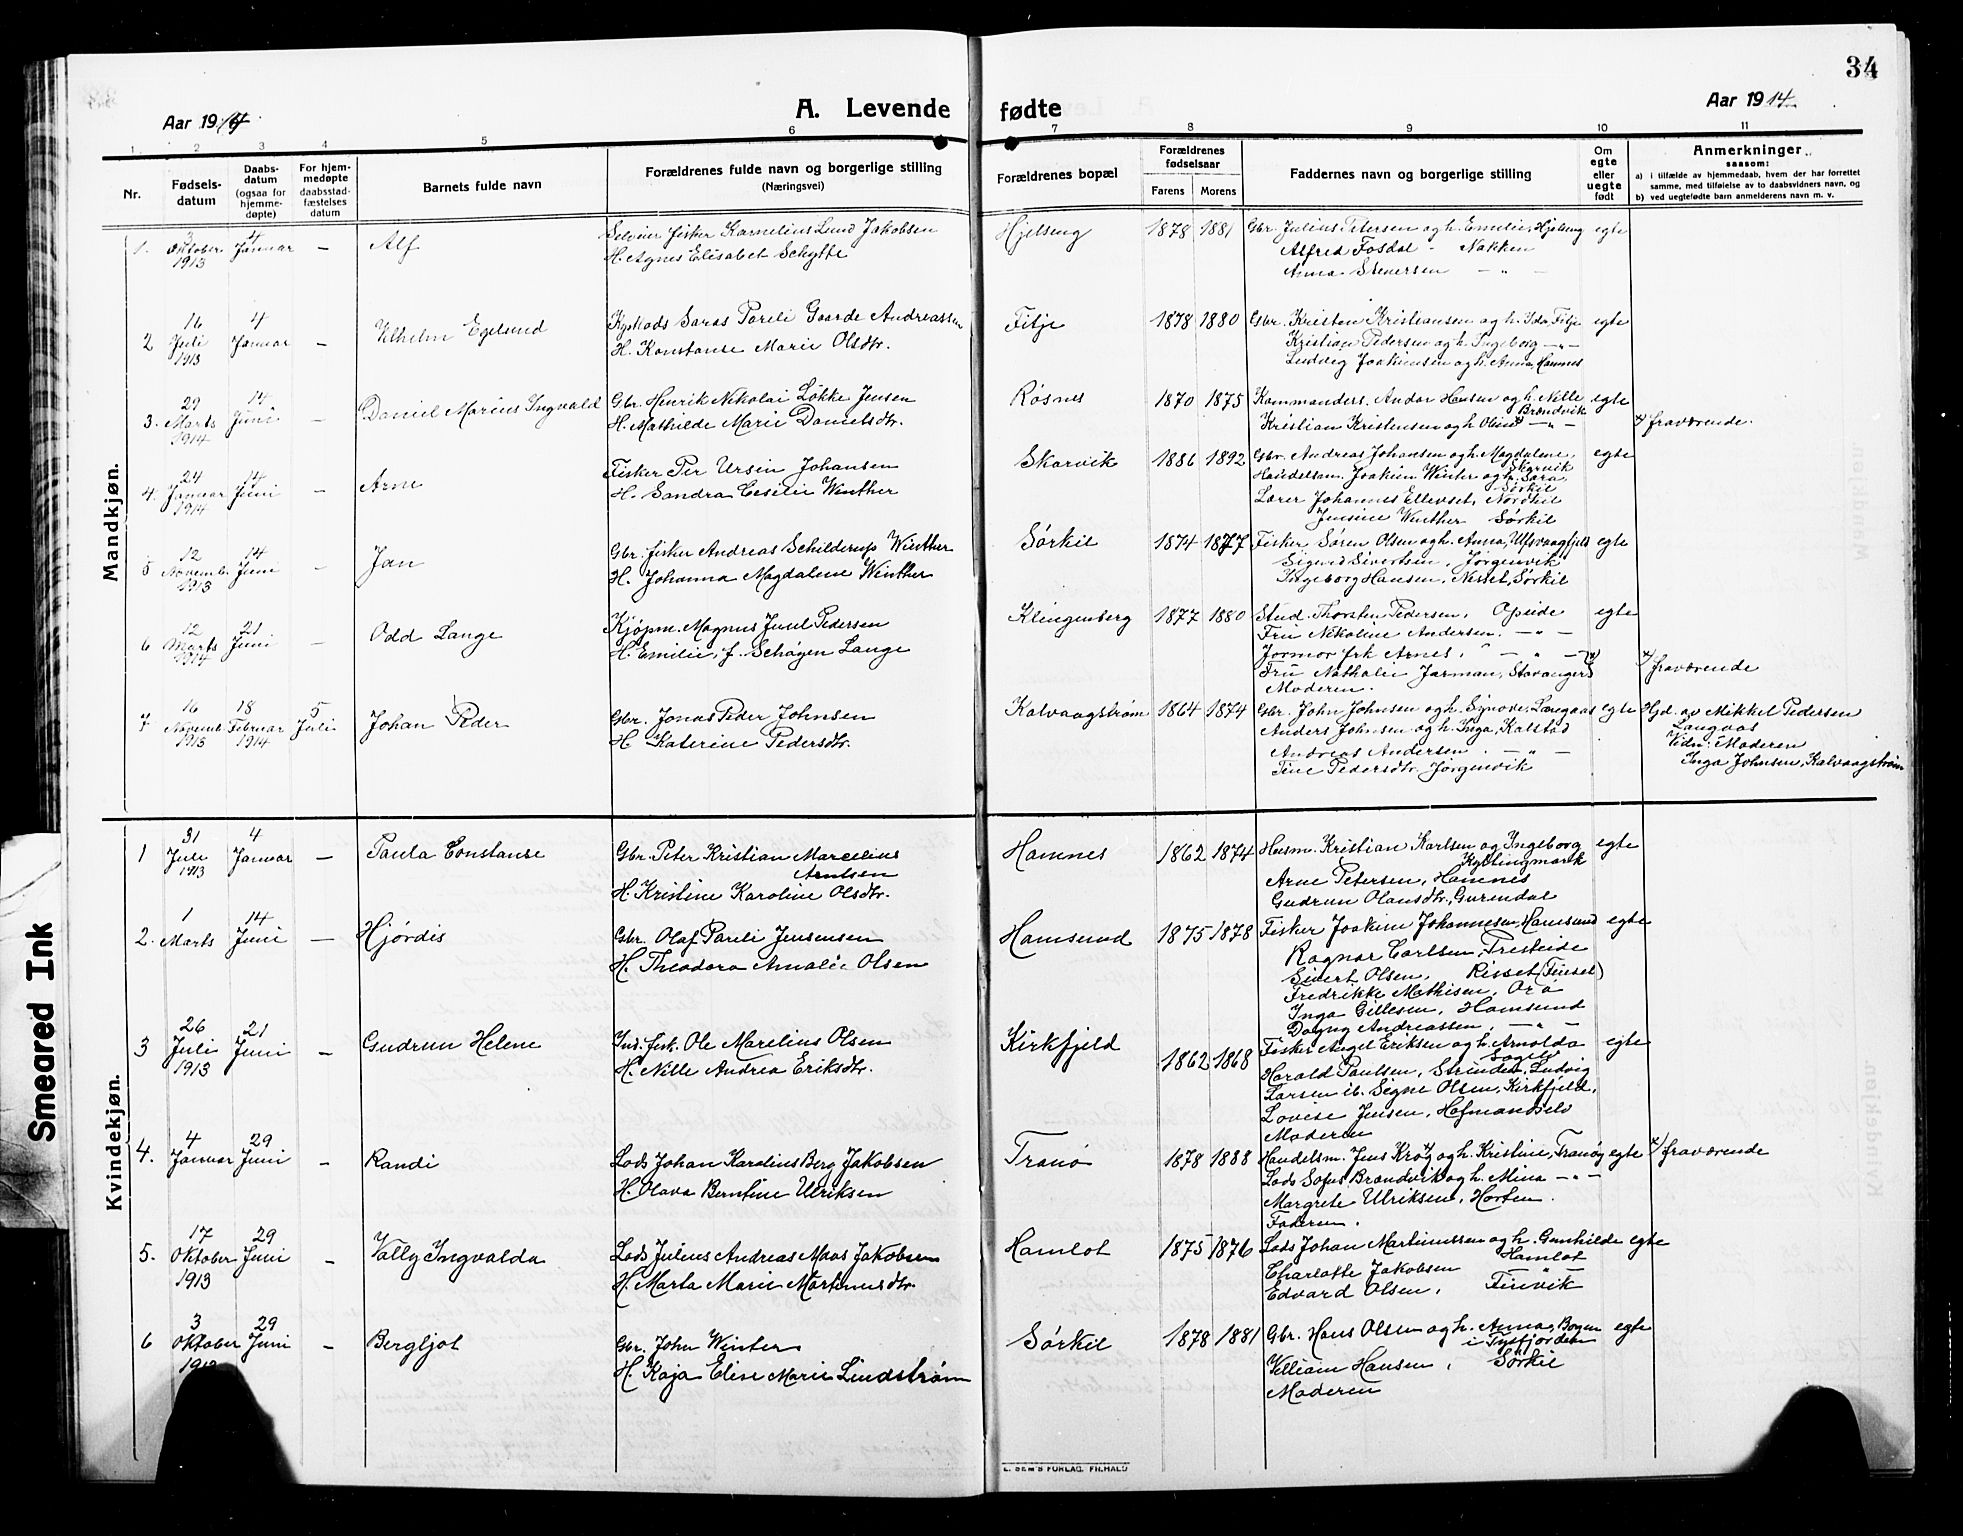 34
Aar 1914
A. Levende fødte
Aar 1914
1. 2 3 4 5 6 7 8 9 10 11
Nr.
Fødsels-
datum
Daabs-
datum
(ogsaa for
hjemme-
døpte)
For hjem-
medøpte
daabsstad-
fæstelses
datum
Barnets fulde navn
Forældrenes fulde navn og borgerlige stilling
(Næringsvei)
Forældrenes bopæl
Forældrenes
fødselsaar
Farens Morens
Faddernes navn og borgerlige stilling
Om
egte
eller
uegte
født
Anmerkninger
saasom:
a) i tilfælde av hjemmedaab, hvem der har forrettet
samme, med tilføielse av to daabsvidners navn, og
b) ved uegtefødte barn anmelderens navn m. v.
Mandkjøn.
1. 3 Oktober 1913 4 Januar – Alf
Selveier fisker Kornelius Lund Jakobsen
H. Agnes Elisabet Schytte
Hjelseng 1878 1881
Gbr. Julius Petersen og h. Emelie, Hjelseng egte
Alfred Fosdal - Nakken
Anna Sieversen – " –
2 16 Juli 1913 4 Januar – Vilhelm Egelund
Saras Pareli Gaarde Andreassen
H. Konstanse Marie Olsdtr.
Fitje 1878 1880
Gbr. Kristen Kristiansen og h. Ida, Fitje egte
Kristian Pedersen og h. Ingeborg – " –
Ludvig Joakimsen og h. Anna, Hamnes
3. 29 Marts 1914 14 Juni – Daniel Marius Ingvald
Gbr. Henrik Nikolai Løkke Jensen
H. Mathilde Marie Danielsdtr.
Røsnes 1870 1875
Kommanders. Andor Hansen og h. Nille egte
Brændvik
Kristian Kristensen og h. – " –
x) fraværende.
4. 24 Januar 1914 14 Juni – Arne
Fisker Per Ursin Johansen
H. Sandra Cecilie Winther
Skarvik 1886 1892
Gbr. Andreas Johansen og h. Magdalene, egte
Skarvik
Handelsm. Joakim Winter og h. Sara,
Sørkil
Lærer Johannes Ellevset, Nordkil
Jensine Winther Sørkil
5 12 Novemb. 1913 14 Juni – Jan
Gbr. fisker Andreas Schilderup Winther
H. Johanna Magdalene Winther
Sørkil 1874 1877
Fisker Søren Olsen og h. Anna, Ulvsvaagfjeld egte
Sigurd Sivertsen, Jørgenvik
Ingeborg Hansen, Nesset, Sørkil
6 12 Marts 1914 21 Juni – Odd Lange
Kjøpm. Magnus Juul Pedersen
H. Emilie, f. Schøyen Lange
Klingenberg 1877 1880
Stud. Thorsten Pedersen, Opeide egte
Fru Nikoline Andersen. – " –
Jormor frk Arnes, – " – x)
Fru Nathalie Jarman, Stavanger
Moderen.
x) fraværende
7 16 Novemb. 1913 18 Februar 1914 5 Juli Johan Peder
Gbr. Jonas Peder Johnsen
H. Katerine Pedersdtr.
Kalvaagstrøm 1864 1874
Gbr. John Johnsen og h. Synove, Langaas egte
Anders Johnsen og h. Inga, Kalstad
Andreas Andersen. – " –
Tine Pedersdtr. Jørgenvik
Hjd. av Mikkel Pedersen
Langaas
Vidn: Moderen
Inga Johnsen, Kalvaagstrøm
Kvindekjøn.
1 31 Juli 1913 4 Januar – Paula Constanse
Gbr. Peter Kristian Marcelius
Arntsen
H. Kristine Karoline Olsdtr.
Hamnes 1862 1874
Husm. Kristian Karlsen og Ingeborg egte
Kyllingmark
Arne Petersen, Hamnes
Gudrun Olausdtr., Gurendal
2. 1 Marts 14 Juni – Hjørdis
Gbr. Olaf Pareli Jensensen
H. Theodora Amalie Olsen
Hamsund 1875 1878
Fisker Joakim Johannesen, Hamsund egte
Ragnar Carlsen, Presteide
Sivert Olsen, Risset (Finset)
Fredrikke Mathisen, Orø
Inga Gillesen, Hamsund
Dagny Andreassen, – " –
3 26 Juli 1913 21 Juni – Gudrun Helene
Ind. fisk. Ole Marelius Olsen
H. Nille Andrea Eriksdtr.
Kirkfjeld 1862 1868
Fisker Angel Eriksen og h. Arnolda egte
Sagelv
Harald Paulsen, Strinden, Ludvig
Larsen ib. Signe Olsen, Kirkfjeld,
Lovise Jensen, Hofmandselv
Moderen
4. 4 Januar 29 Juni – Randi
Lods Johan Karolius Berg Jakobsen
H. Olava Berntine Ulriksen
Tranø 1878 1888
Handelsm. Jens Krog og h. Kristine, Tranøy egte
Lods Sofus Brændvik og h. Mina – " –
Margrete Ulriksen, Horten.
Faderen.
x) fraværende
5. 17 Oktober 1913 29 Juni – Vally Ingvalda
Lods Julius Andreas Maas Jakobsen
H. Marta Marie Martinusdtr.
Hamlot 1875 1876
Lods Johan Martinussen og h. Gunhilde egte
Hamlot
Charlotte Jakobsen – " –
Edvard Olsen, Finvik
6 3 Oktober 1913 29 Juni – Bergljot
Gbr. John Winter
H. Kaja Elise Marie Lindstrøm
Sørkil 1878 1881
Gbr. Hans Olsen og h. Anna, Bogen egte
i Tysfjorden
Villiam Hansen, Sørkil
Moderen
Smeared Ink
E. SEM'S FORLAG. FR.HALD